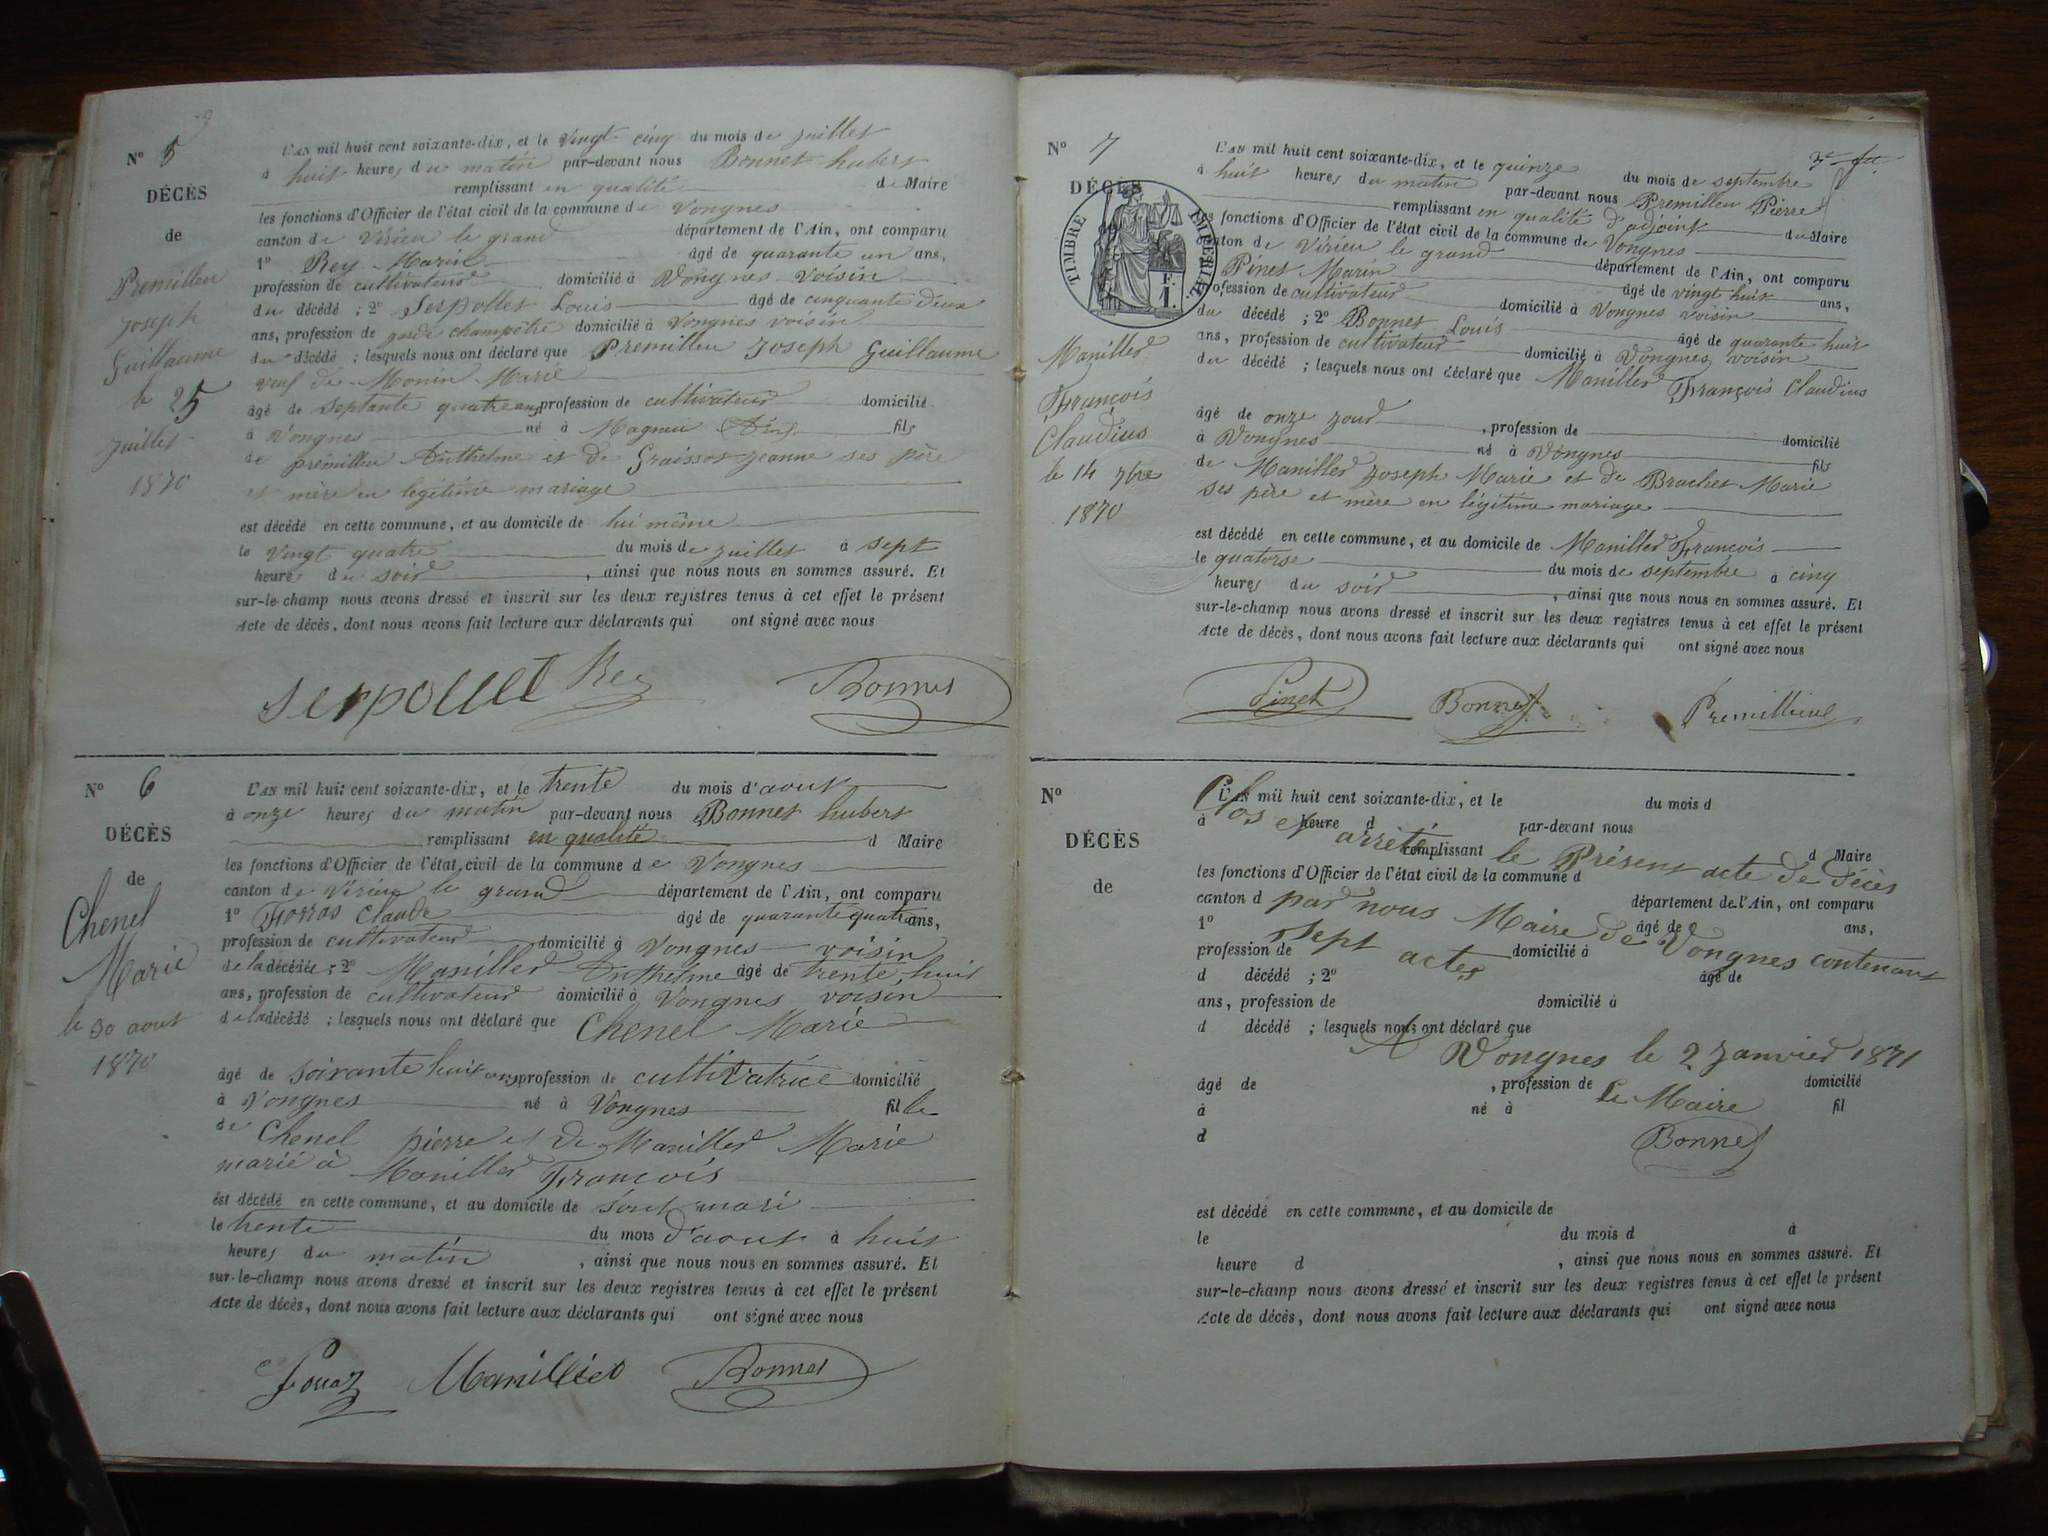 N° 5
DÉCÈS
de
Premillieu
Joseph
Guillaume
le 25
juillet
1870
L'AN mil huit cent soixante-dix, et le vingt cinq du mois de juillet
à huit heures du matin par-devant nous Bonnet hubert
remplissant en qualité de Maire
les fonctions d'Officier de l'état civil de la commune de Vongnes
canton de Virieu le grand département de l'Ain, ont comparu
1° Rey Marin âgé de quarante un ans,
profession de cultivateur domicilié à Vongnes voisin
du décédé ; 2° Serpollet Louis âgé de cinquante deux
ans, profession de garde champêtre domicilié à Vongnes voisin
du décédé ; lesquels nous ont déclaré que Premillieu Joseph Guillaume
veuf de Monin Marie
âgé de septante quatre ans profession de cultivateur domicilié
à Vongnes né à Magnieu fils
de prémillieu Anthelme et de Graissot jeanne ses père
et mère en legitime mariage
est décédé en cette commune, et au domicile de lui même
le vingt quatre du mois de juillet à sept
heures du soir , ainsi que nous nous en sommes assuré. Et
sur-le-champ nous avons dressé et inscrit sur les deux registres tenus à cet effet le présent
Acte de décès, dont nous avons fait lecture aux déclarants qui ont signé avec nous
serpollet Rey Bonnet
N° 6
DÉCÈS
de
Chenel
Marie
le 30 aout
1870
L'AN mil huit cent soixante-dix, et le trente du mois d'aout
à onze heures du matin par-devant nous Bonnet hubert
remplissant en qualité d Maire
les fonctions d'Officier de l'état civil de la commune de Vongnes
canton de Virieu le grand département de l'Ain, ont comparu
1° Forras Claude âgé de quarante quatre ans,
profession de cultivateur domicilié à Vongnes voisin
de la décédée ; 2° Manillier Anthelme âgé de trente huit
ans, profession de cultivateur domicilié à Vongnes voisin
de la décédé ; lesquels nous ont déclaré que Chenel Marie
âgé de soixante huit ans profession de cultivatrice domicilié
à Vongnes né à Vongnes fille
de Chenel pierre et de Manillier Marie
marié à Manillier François
est décédé en cette commune, et au domicile de sont mari
le trente du mois d'aout à huit
heures du matin , ainsi que nous nous en sommes assuré. Et
sur-le-champ nous avons dressé et inscrit sur les deux registres tenus à cet effet le présent
Acte de décès, dont nous avons fait lecture aux déclarants qui ont signé avec nous
Manillier Bonnet
N° 7
DÉCÈS
TIMBRE IMPERIAL
F.
1.
Manillier
François
Claudius
le 14 7bre
1870
L'AN mil huit cent soixante-dix, et le quinze du mois de septembre
à huit heures du matin par-devant nous Premillieu Pierre
remplissant en qualité d'adjoint du Maire
les fonctions d'Officier de l'état civil de la commune de Vongnes
canton de Virieu le grand département de l'Ain, ont comparu
Pinet Marin âgé de vingt huit ans,
profession de cultivateur domicilié à Vongnes voisin
du décédé ; 2° Bonnet Louis âgé de quarante huit
ans, profession de cultivateur domicilié à Vongnes voisin
du décédé ; lesquels nous ont déclaré que Manillier François Claudius
âgé de onze jour , profession de domicilié
à Vongnes né à Vongnes fils
de Manillier Joseph Marie et de Brachet Marie
ses père et mère en légitime mariage
est décédé en cette commune, et au domicile de Manillier François
le quatorse du mois de septembre à cinq
heures du soir , ainsi que nous nous en sommes assuré. Et
sur-le-champ nous avons dressé et inscrit sur les deux registres tenus à cet effet le présent
Acte de décès, dont nous avons fait lecture aux déclarants qui ont signé avec nous
Pinet Bonnet Premillieu
N°
DÉCÈS
de
L'AN mil huit cent soixante-dix, et le du mois d
à heure d par-devant nous
remplissant d Maire
Clos et arrêté le Présent acte de décès
les fonctions d'Officier de l'état civil de la commune d
canton d département de l'Ain, ont comparu
par nous Maire de Vongnes contenant
1° âgé de ans,
sept actes
profession de domicilié à
d décédé ; 2° âgé de
ans, profession de domicilié à
d décédé ; lesquels nous ont déclaré que
A Vongnes le 2 janvier 1871
âgé de , profession de domicilié
le Maire
à né à fil
d
Bonnet
est décédé en cette commune, et au domicile de
le du mois d à
heure d , ainsi que nous nous en sommes assuré. Et
sur-le-champ nous avons dressé et inscrit sur les deux registres tenus à cet effet le présent
Acte de décès, dont nous avons fait lecture aux déclarants qui ont signé avec nous